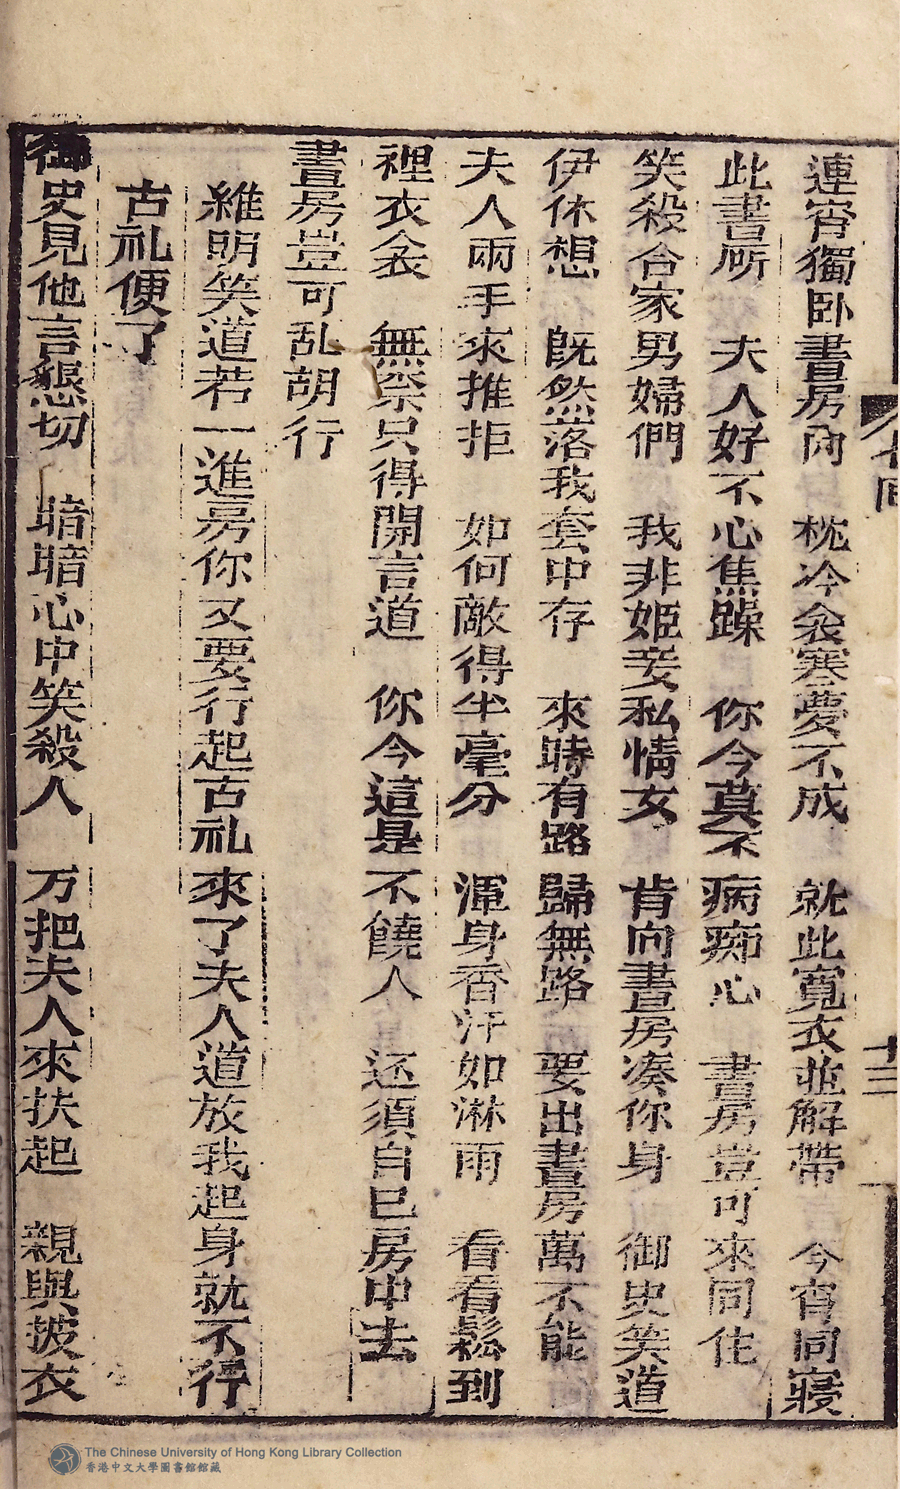 連宵獨卧書房內　枕冷衾寒夢不成　就此寬衣並解帶　今宵同寢
此書所　夫人好不心焦躁　你今莫不病痴心　書房豈可來同住
笑殺合家男婦們　我非姬妾私情女　肯向書房凑你身　御史笑道
伊休想　既然落我套中存　來時有路歸無路　要出書房萬不能
夫人兩手來推拒　如何敵得半毫分　渾身香汗如淋雨　看看鬆到
裡衣衾　無奈只得開言道　你今這是不饒人　还須自已房中去
書房豈可乱胡行
維明笑道若一進房你又要行起古礼來了夫人道放我起身就不行
古礼便了
御史見他言懇切　暗暗心中笑殺人　万把夫人來扶起　親與披衣
十三
The Chinese University of Hong Kong Library Collection
香港中文大學圖書館館藏